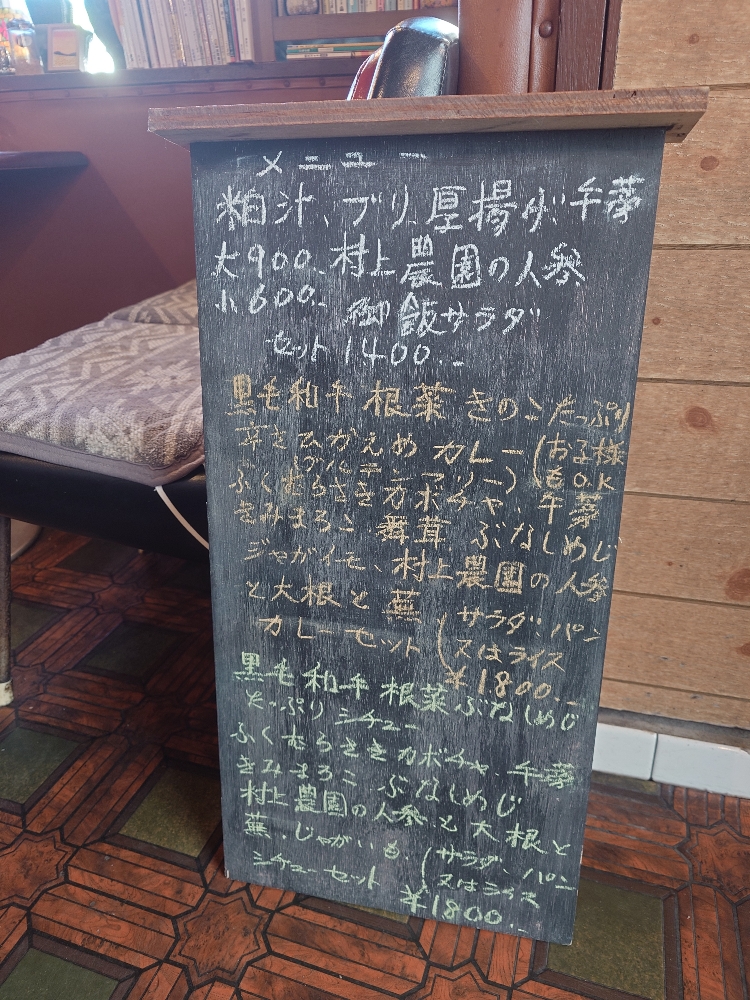 メニュー
粕汁、ブリ、厚揚げ、牛蒡
大900.村上農園の人参
小600. 御飯サラダ
セット1400..
黒毛和牛 根菜 きのこたっぷり
辛さひかえめ カレー(お子様もO.K
(グルテンフリー)
ふくむらさきカボチャ、牛蒡
きみまろこ 舞茸 ぶなしめじ
ジャガイモ、村上農園の人参
と大根と蕪
カレーセット(サラダ、パン又はライス
¥1800..
黒毛和牛 根菜 ぶなしめじ
たっぷり シチュー
ふくむらさきカボチャ、牛蒡
きみまろこ ぶなしめじ
村上農園の人参と大根と
蕪、じゃがいも、
シチューセット(サラダ、パン又はライス
¥1800..